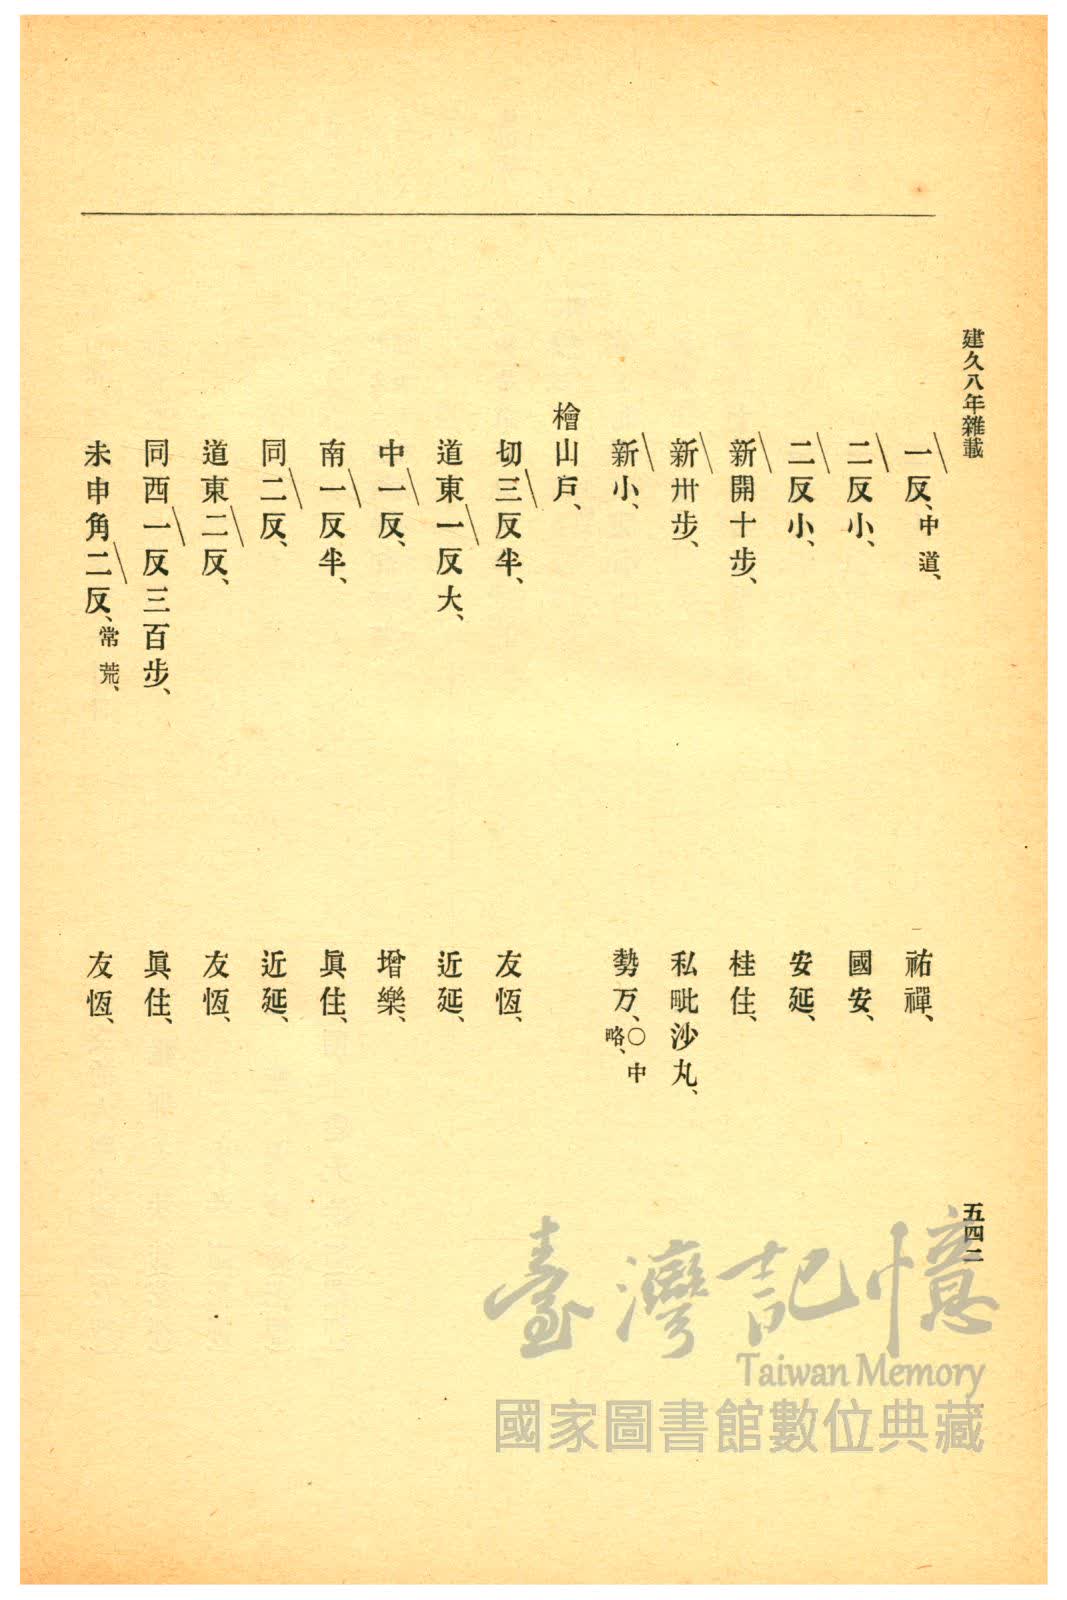 建久八年雜載
五四二
一反、中道、　祐禪、
二反小、　國安、
二反小、　安延、
新開十步、　桂住、
新卅步、　私毗沙丸、
新小、　勢万、○中略、
檜山戶、
切三反半、　友恆、
道東一反大、　近延、
中一反、　增樂、
南一反半、　眞住、
同二反、　近延、
道東二反、　友恆、
同西一反三百步、　眞住、
未申角二反、常荒、　友恆、
臺灣記憶
Taiwan Memory
國家圖書館數位典藏